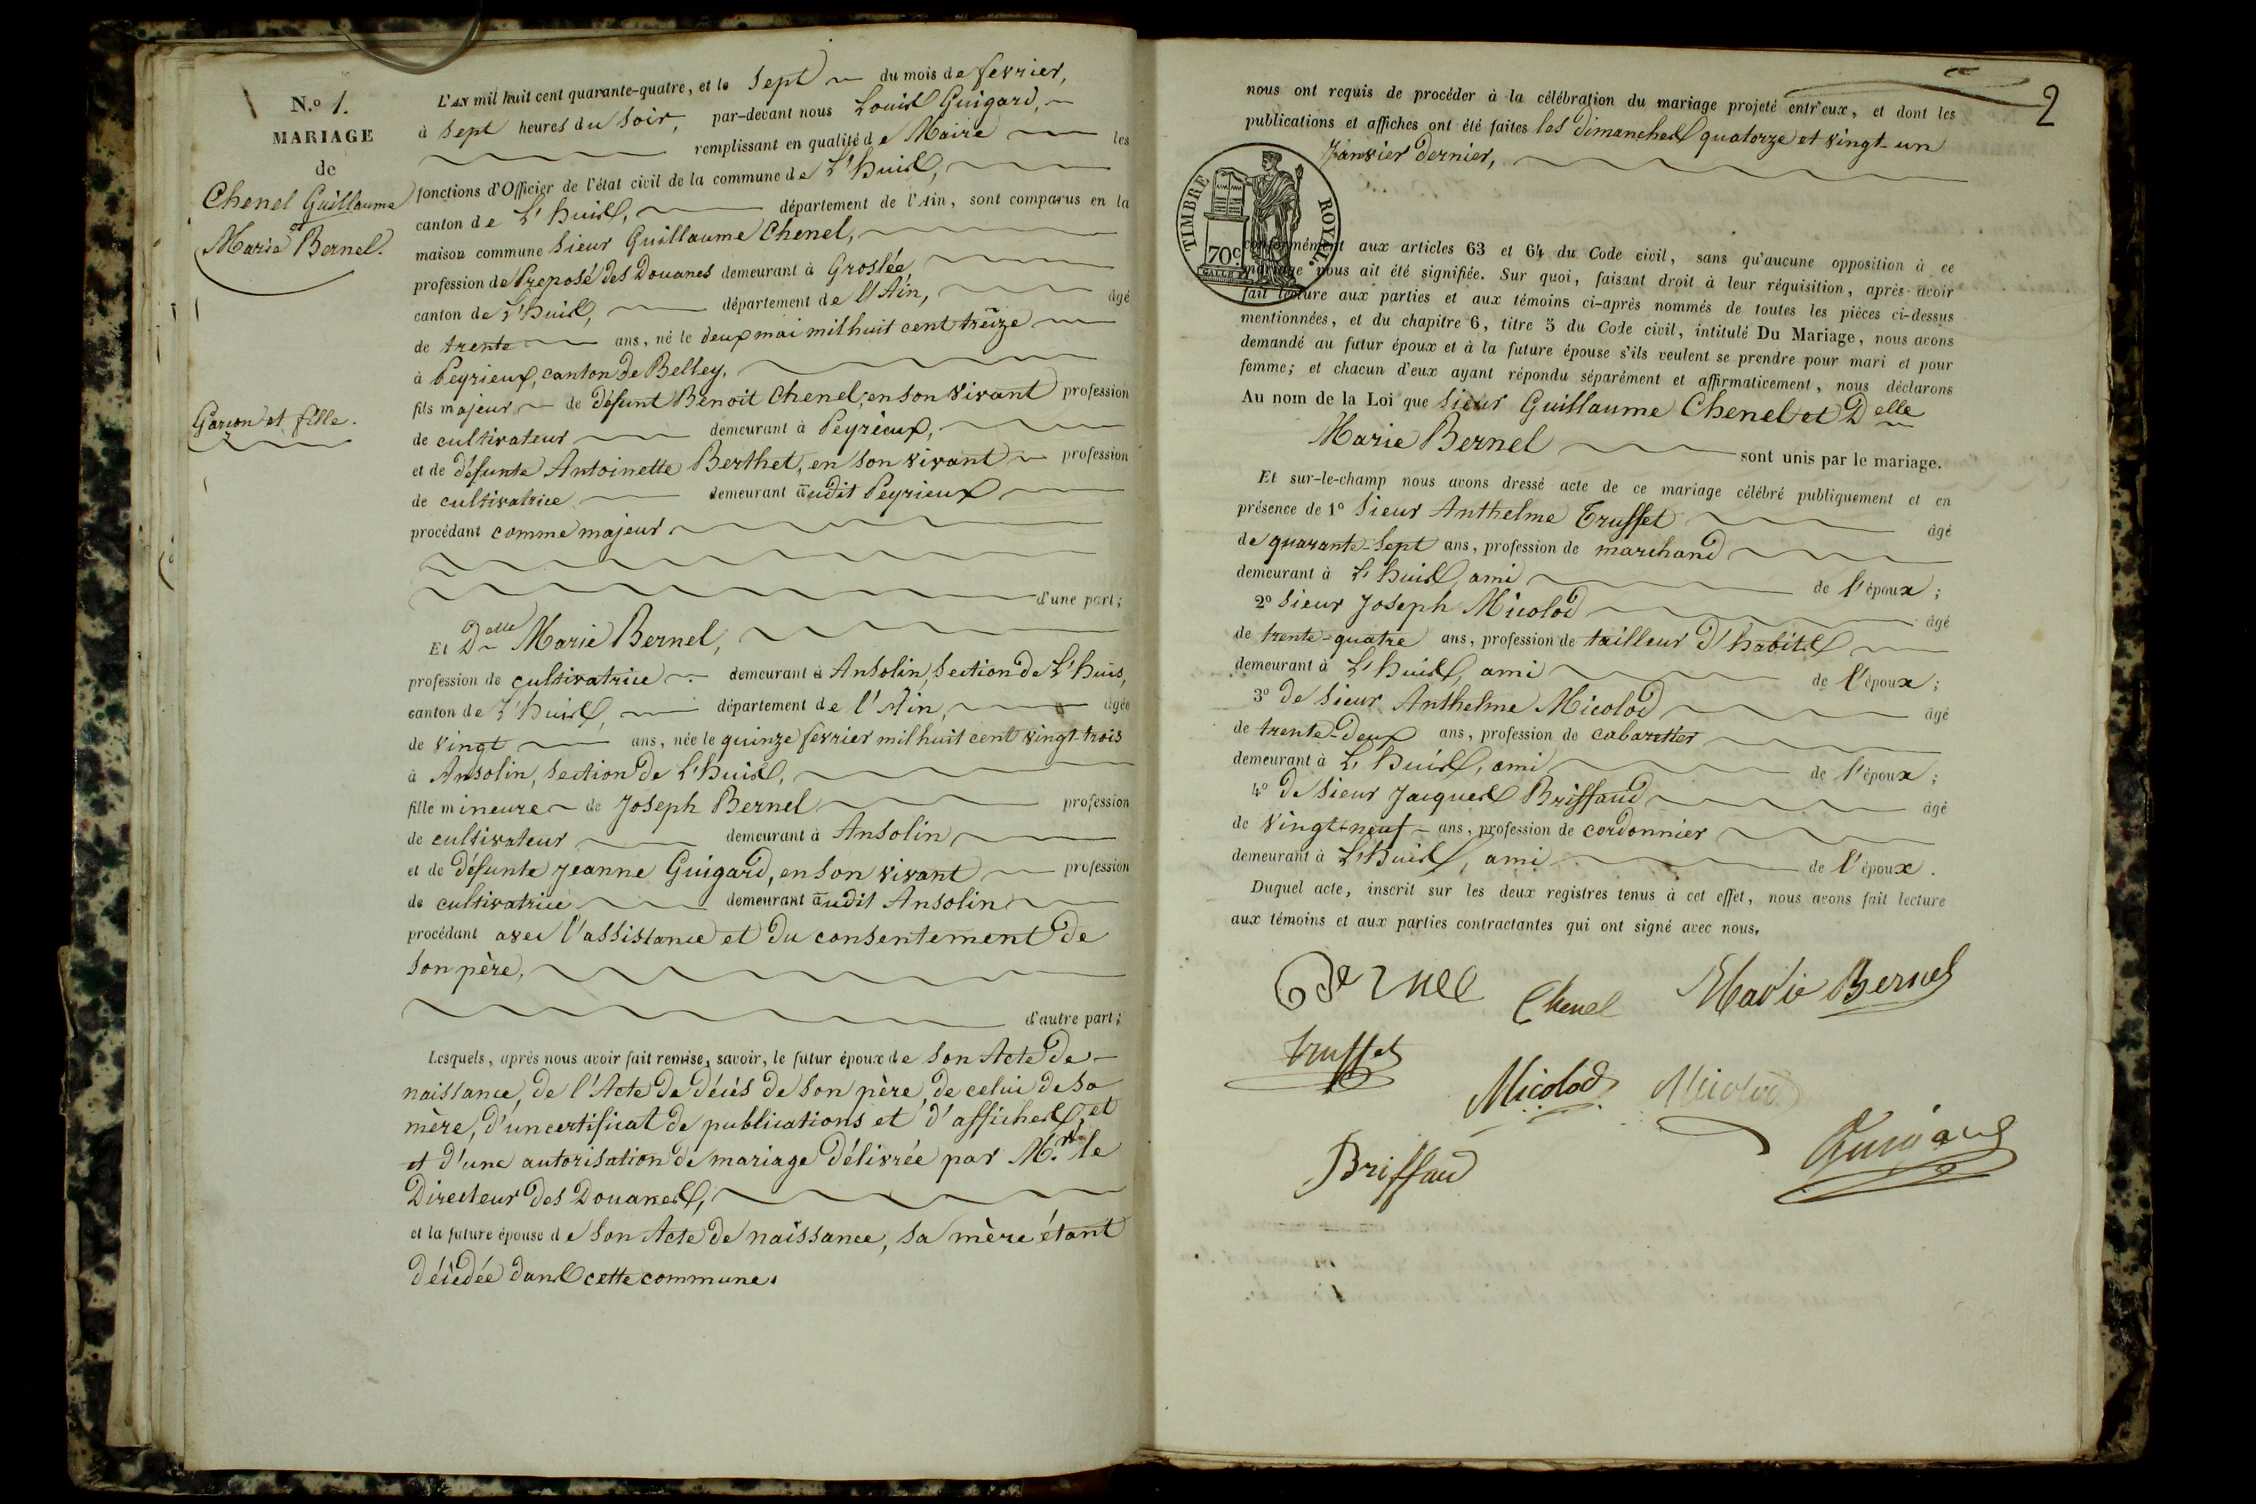 N.º 1.
MARIAGE
de
Chenel Guillaume
et
Marie Bernel.
Garçon et fille.
L'AN mil huit cent quarante-quatre, et le sept du mois de fevrier,
à sept heures du soir, par-devant nous Louis Guigard,
remplissant en qualité de Maire les
fonctions d'Officier de l'état civil de la commune de L'huis,
canton de L'huis, département de l'Ain, sont comparus en la
maison commune sieur Guillaume Chenel,
profession de Preposé des Douanes demeurant à Groslée,
canton de L'huis, département de l'Ain, âgé
de trente ans, né le deux mai mil huit cent treize
à Peyrieux, canton de Belley,
fils majeur de défunt Benoit Chenel, en son vivant profession
de cultivateur demeurant à Peyrieux,
et de défunte Antoinette Berthet, en son vivant profession
de cultivatrice demeurant audit Peyrieux
procédant comme majeur
d'une part;
Et Delle Marie Bernel,
profession de cultivatrice demeurant à Ansolin, section de L'huis,
canton de L'huis, département de l'Ain, âgée
de vingt ans, née le quinze fevrier mil huit cent vingt-trois
à Ansolin, section de L'huis,
fille mineure de Joseph Bernel profession
de cultivateur demeurant à Ansolin
et de défunte Jeanne Guigard, en son vivant profession
de cultivatrice demeurant audit Ansolin
procédant avec l'assistance et du consentement de
son père,
d'autre part;
Lesquels, après nous avoir fait remise, savoir, le futur époux de son Acte de
naissance, de l'Acte de décès de son père, de celui de sa
mère, d'un certificat de publications et d'affiches, et
et d'une autorisation de mariage délivrée par Mr. le
Directeur des Douanes,
et la future épouse de son Acte de naissance, sa mère étant
décédée dans cette commune.
2
nous ont requis de procéder à la célébration du mariage projeté entr'eux, et dont les
publications et affiches ont été faites les dimanches quatorze et vingt-un
Janvier dernier,
TIMBRE ROYAL
70c
conformément aux articles 63 et 64 du Code civil, sans qu'aucune opposition à ce
mariage nous ait été signifiée. Sur quoi, faisant droit à leur réquisition, après avoir
fait lecture aux parties et aux témoins ci-après nommés de toutes les pièces ci-dessus
mentionnées, et du chapitre 6, titre 5 du Code civil, intitulé Du Mariage, nous avons
demandé au futur époux et à la future épouse s'ils veulent se prendre pour mari et pour
femme; et chacun d'eux ayant répondu séparément et affirmativement, nous déclarons
Au nom de la Loi que sieur Guillaume Chenel et Delle
Marie Bernel sont unis par le mariage.
Et sur-le-champ nous avons dressé acte de ce mariage célébré publiquement et en
présence de 1º sieur Anthelme Truffet âgé
de quarante-sept ans, profession de marchand
demeurant à L'huis, ami de l'époux;
2º sieur Joseph Micolod âgé
de trente-quatre ans, profession de tailleur d'habits
demeurant à L'huis, ami de l'époux;
3º de sieur Anthelme Micolod âgé
de trente-deux ans, profession de cabaretier
demeurant à L'huis, ami de l'époux;
4º de sieur Jacques Briffaud âgé
de vingt-neuf ans, profession de cordonnier
demeurant à L'huis, ami de l'époux.
Duquel acte, inscrit sur les deux registres tenus à cet effet, nous avons fait lecture
aux témoins et aux parties contractantes qui ont signé avec nous.
Bernel Chenel Marie Bernel
truffet
Micolod Micolod
Briffaud Guigard